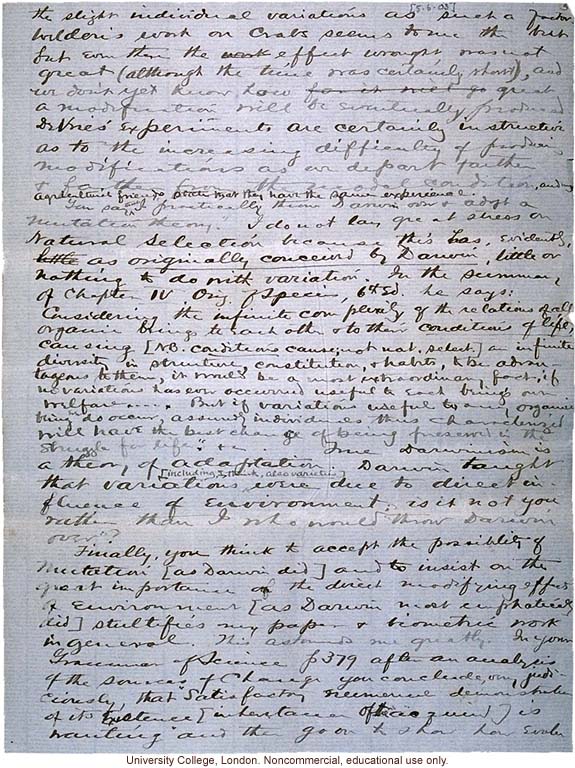 [5.6.03]
the slight individual variations as such a factor.
Weldon's work on Crabs seems to me the best
but even then the work effect wrought was not
great (although the time was certainly short), and
we don't yet know how far it will go great
a modification will be eventually produced
DeVries' Experiments are certainly instructive
as to the increasing difficulty of producing
modifications as we depart farther
agricultural friends state that they have the same experience.
You say I practically throw Darwin over & adopt a
mutation theory. I do not lay great stress on
Natural Selection because this has, evidently,
little as originally conceived by Darwin, little or
nothing to do with variation. In the summary
of Chapter IV Orig. of Species, 6th Ed. he says:
Considering the infinite complexity of the relations of all
organic beings to each other & to their conditions of life,
causing [N.B. conditions cause; not nat. select.] an infinite
diversity in structure, constitution, & habits, to be advan-
tageous to them, it would be a most extraordinary fact, if
no variations had ever occurred useful to each being's own
welfare. But if variations useful to any organic
being do occur, assuredly individuals thus characterized
will have the best chance of being preserved in the
struggle for life." True Darwinism is
a theory of adaptation. Darwin taught
[including, I think, also varieties]
that variations were due to direct in-
fluence of Environment; is it not you
rather than I who would throw Darwin
over?
Finally, you think to accept the possibility of
Mutation [as Darwin did] and to insist on the
great importance of the direct modifying effect
of Environment [as Darwin most emphatically
did] stultifies my paper & biometric work
in general. This astounds me greatly. In your
Grammar of Science p379 after an analysis
of the sources of Change you conclude, very judi-
ciously, that satisfactory numerical demonstration
of its Existence [inheritance of acquired] is
wanting and then go on to show how Evolu
University College, London. Noncommercial, educational use only.